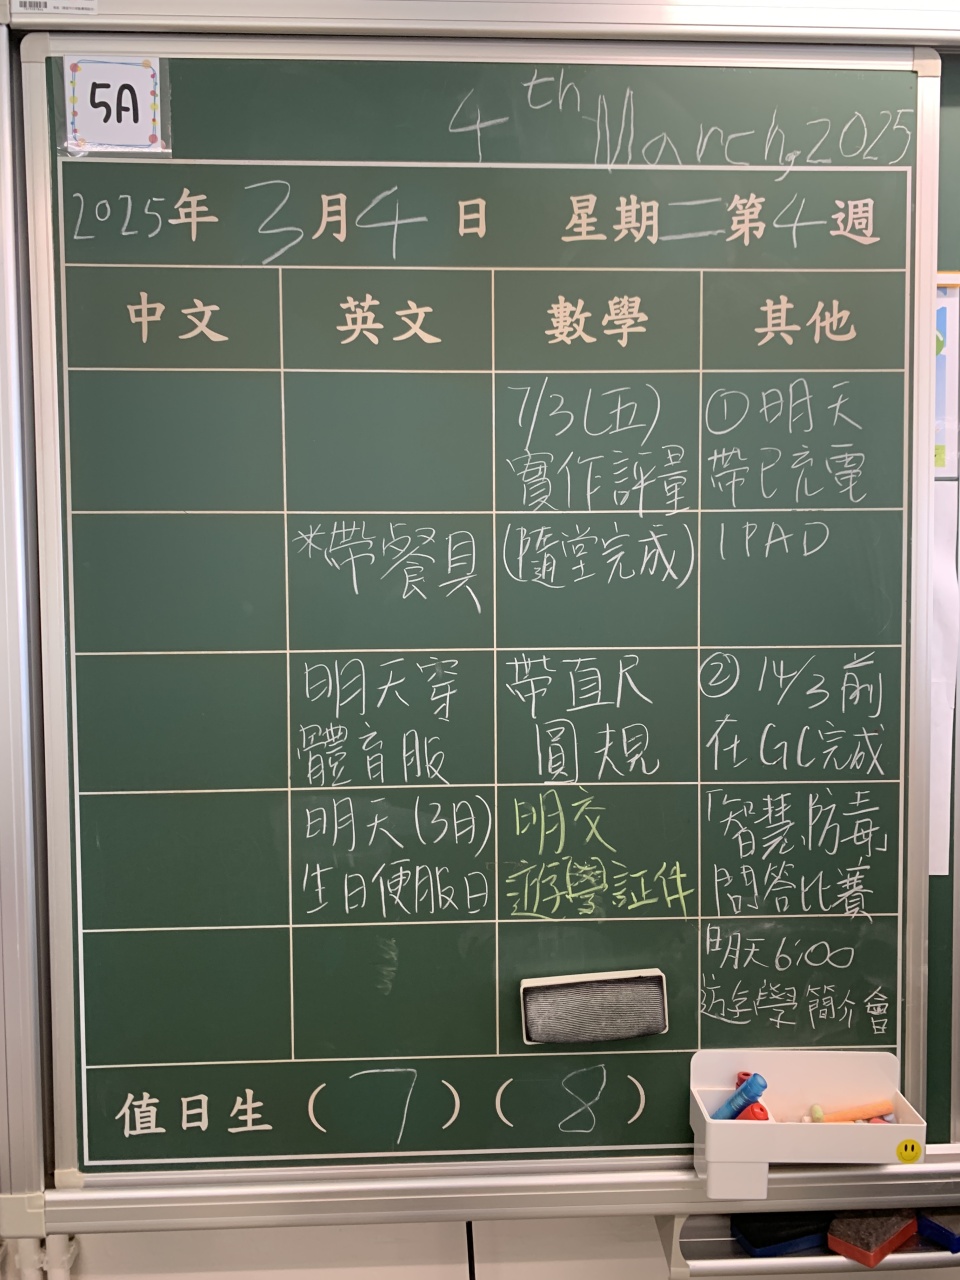 5A
4th March, 2025
2025年3月4日 星期二第4週
中文 英文 數學 其他
7/3(五)
實作評量
(隨堂完成)
帶直尺
圓規
明交
遊學証件
*帶餐具
明天穿
體育服
明天(3月)
生日便服日
①明天
帶已充電
IPAD
②14/3前
在GC完成
「智慧防毒」
問答比賽
明天6:00
遊學簡介會
值日生(7)(8)